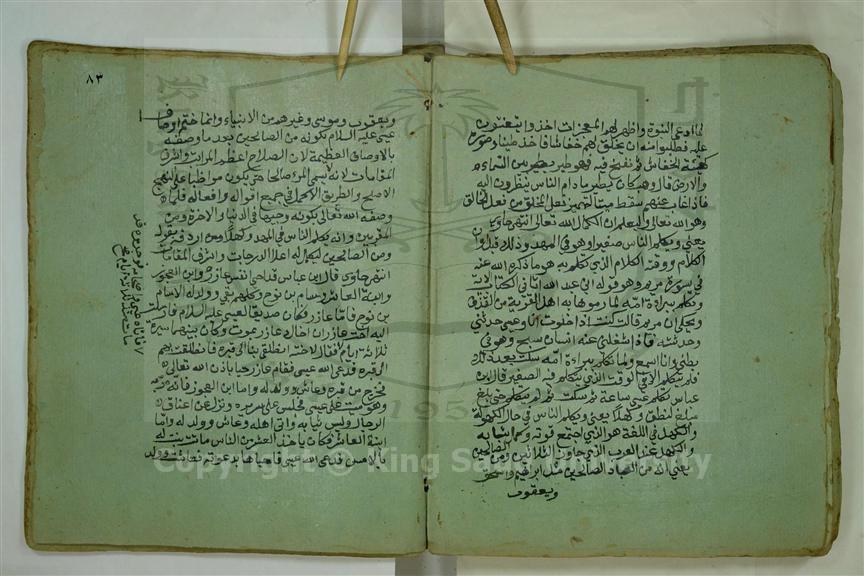 لما ادعى النبوة واظهر لهم المعجزات اخذوا يتعنتون
عليه فطلبوا منه ان يخلق لهم خفاشا فاخذ طينا وصوره
كهيئة الخفاش ثم نفخ فيه فهو طير يطير بين السماء
والارض قال وهب كان يطير ما دام الناس ينظرون اليه
فاذا غاب عنهم سقط ميتا ليتميز فعل المخلوق من فعل الخالق
وهو الله تعالى وليعلم ان الكمال لله تعالى انتهى
يعني ويكلم الناس صغيرا وهو في المهد وذلك قبل
الكلام ووقت الكلام الذي تكلم به هو ما ذكره الله عنه
في سورة مريم وهو قوله اني عبد الله اتاني الكتاب الاية
وتكلم ببراءة امه لما رموها به اهل القرية من القذف
ويحكى ان مريم قالت كنت اذا خلوت انا وعيسى حدثني
وحدثته فاذا شغلني عنه انسان سبح وهو في
بطني وانا اسمع ولما تكلم ببراءة امه سكت بعد ذلك
فلم يتكلم الا في الوقت الذي يتكلم فيه الصغير قال ابن
عباس تكلم عيسى ساعة ثم سكت ثم لم يتكلم حتى بلغ
مبلغ النطق وكهلا يعني ويكلم الناس في حال الكهولة
والكهل في اللغة هو الذي اجتمع قوته وكمل شبابه
والكهل عند العرب الذي جاوز الثلاثين ومن الصالحين
يعني انه من العباد الصالحين مثل ابراهيم واسحق
ويعقوب
٨٣
ويعقوب وموسى وغيرهم من الانبياء وانما ختم اوصاف
عيسى عليه السلام بكونه من الصالحين بعد ما وصفه
بالاوصاف العظيمة لان الصلاح اعظم المراتب واشرف
المقامات لانه لا يسمى المرء صالحا حتى يكون مواظبا على النهج
الاصلح والطريق الاكمل في جميع اقواله وافعاله فلما
وصفه الله تعالى بكونه وجيها في الدنيا والاخرة ومن
المقربين وانه يكلم الناس في المهد وكهلا اردفه بقوله
ومن الصالحين ليكمل له اعلا الدرجات واشرف المقامات
انتهى قال ابن عباس قد احيى انفس عازر وابن العجوز
وابنة العاشر وسام بن نوح وكلهم بقي وولد له الا سام
بن نوح فاما عازر فكان صديقا لعيسى عليه السلام فارسلت
اليه اخته عازر ان اخاك عازر يموت وكان بينهما مسيرة
ثلاثة ايام فقال لاخته انطلقي بنا الى قبره فانطلقت بهم
الى قبره فدعى الله عيسى فقام عازر حيا باذن الله تعالى
فخرج من قبره وعاش وولد له واما ابن العجوز فانه مر به
وهو ميت على عيسى فجلس على سريره ونزل عن اعناق
الرجال ولبس ثيابه واتى اهله وعاش وولد له واما
ابنة العاشر فكان ياخذ العشر من الناس ماتت بنت له
بالامس فدعى الله عيسى فاحياها بدعوته فعاشت وولد